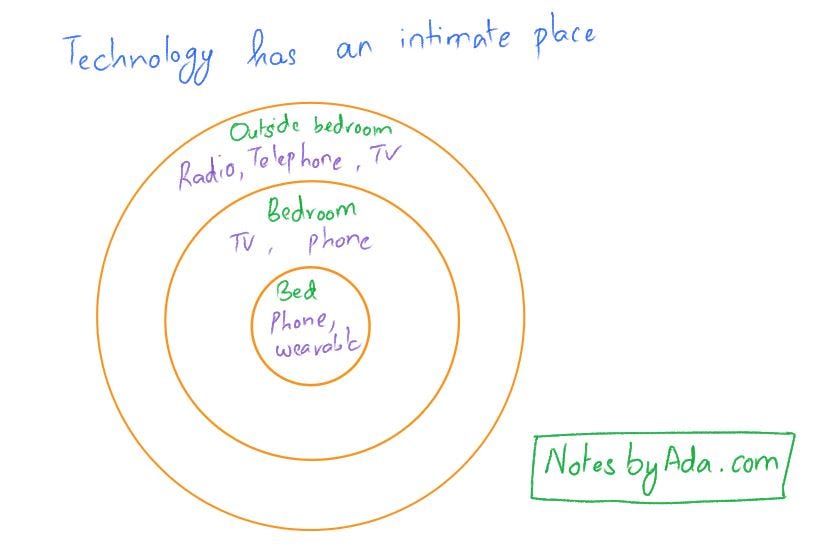 Technology has an intimate place
Outside bedroom
Radio, Telephone, TV
Bedroom
TV, phone
Bed
Phone,
wearable
NotesbyAda.com